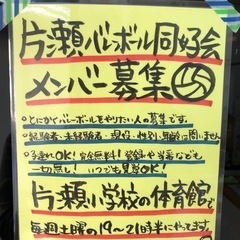 片瀬バレーボール同好会
メンバー募集
・とにかくバレーボールをやりたい人の募集です。
・経験者・未経験者・現役・性別・年齢に問いません
・子連れOK！完全無料！登録や当番なども
一切無し！いつでも見学OK！
片瀬小学校の体育館で
毎週土曜の19〜21時半にやってます。